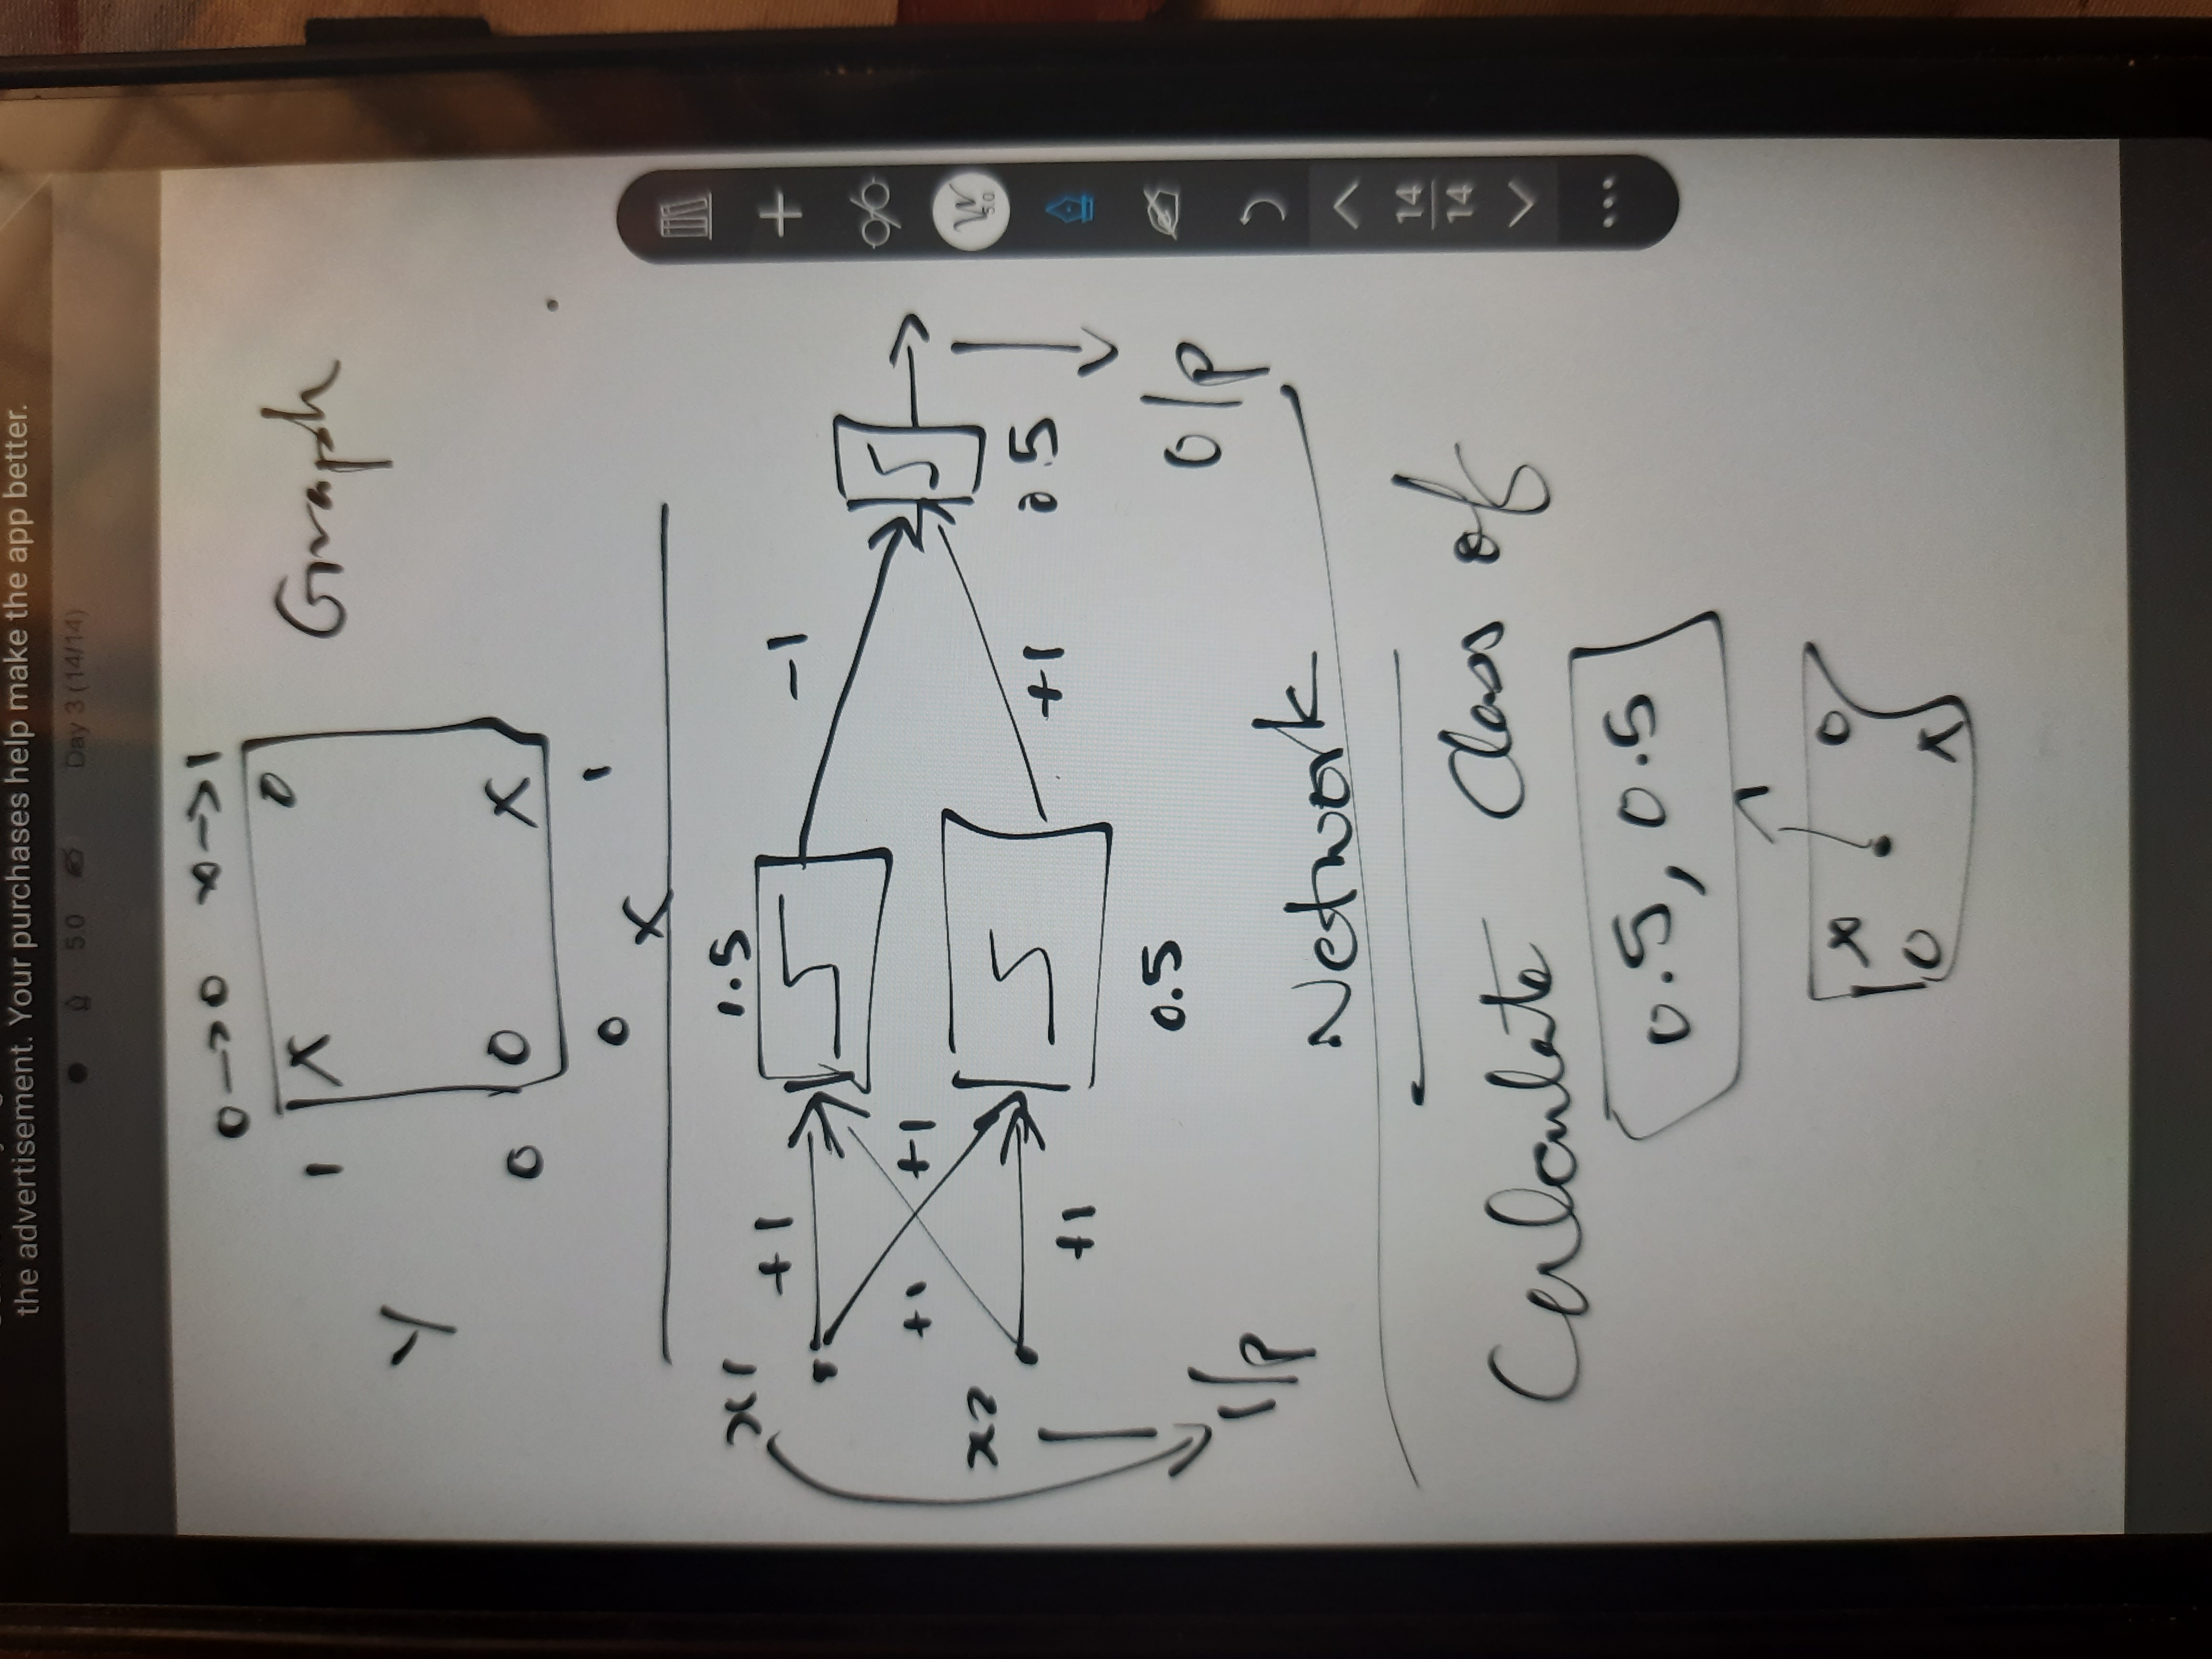 the advertisement. Your purchases help make the app better.
5.0 Day 3 (14/14)
0->0 x->1
1 X 0
Graph
Y
0 0 X
0 1
X
x1 +1 1.5 -1
+1 +1
x2
+1 +1 0.5
0.5
I/p O/p
Network
Calculate Class of
0.5, 0.5
X 0
0 X
W
5.0
14
14